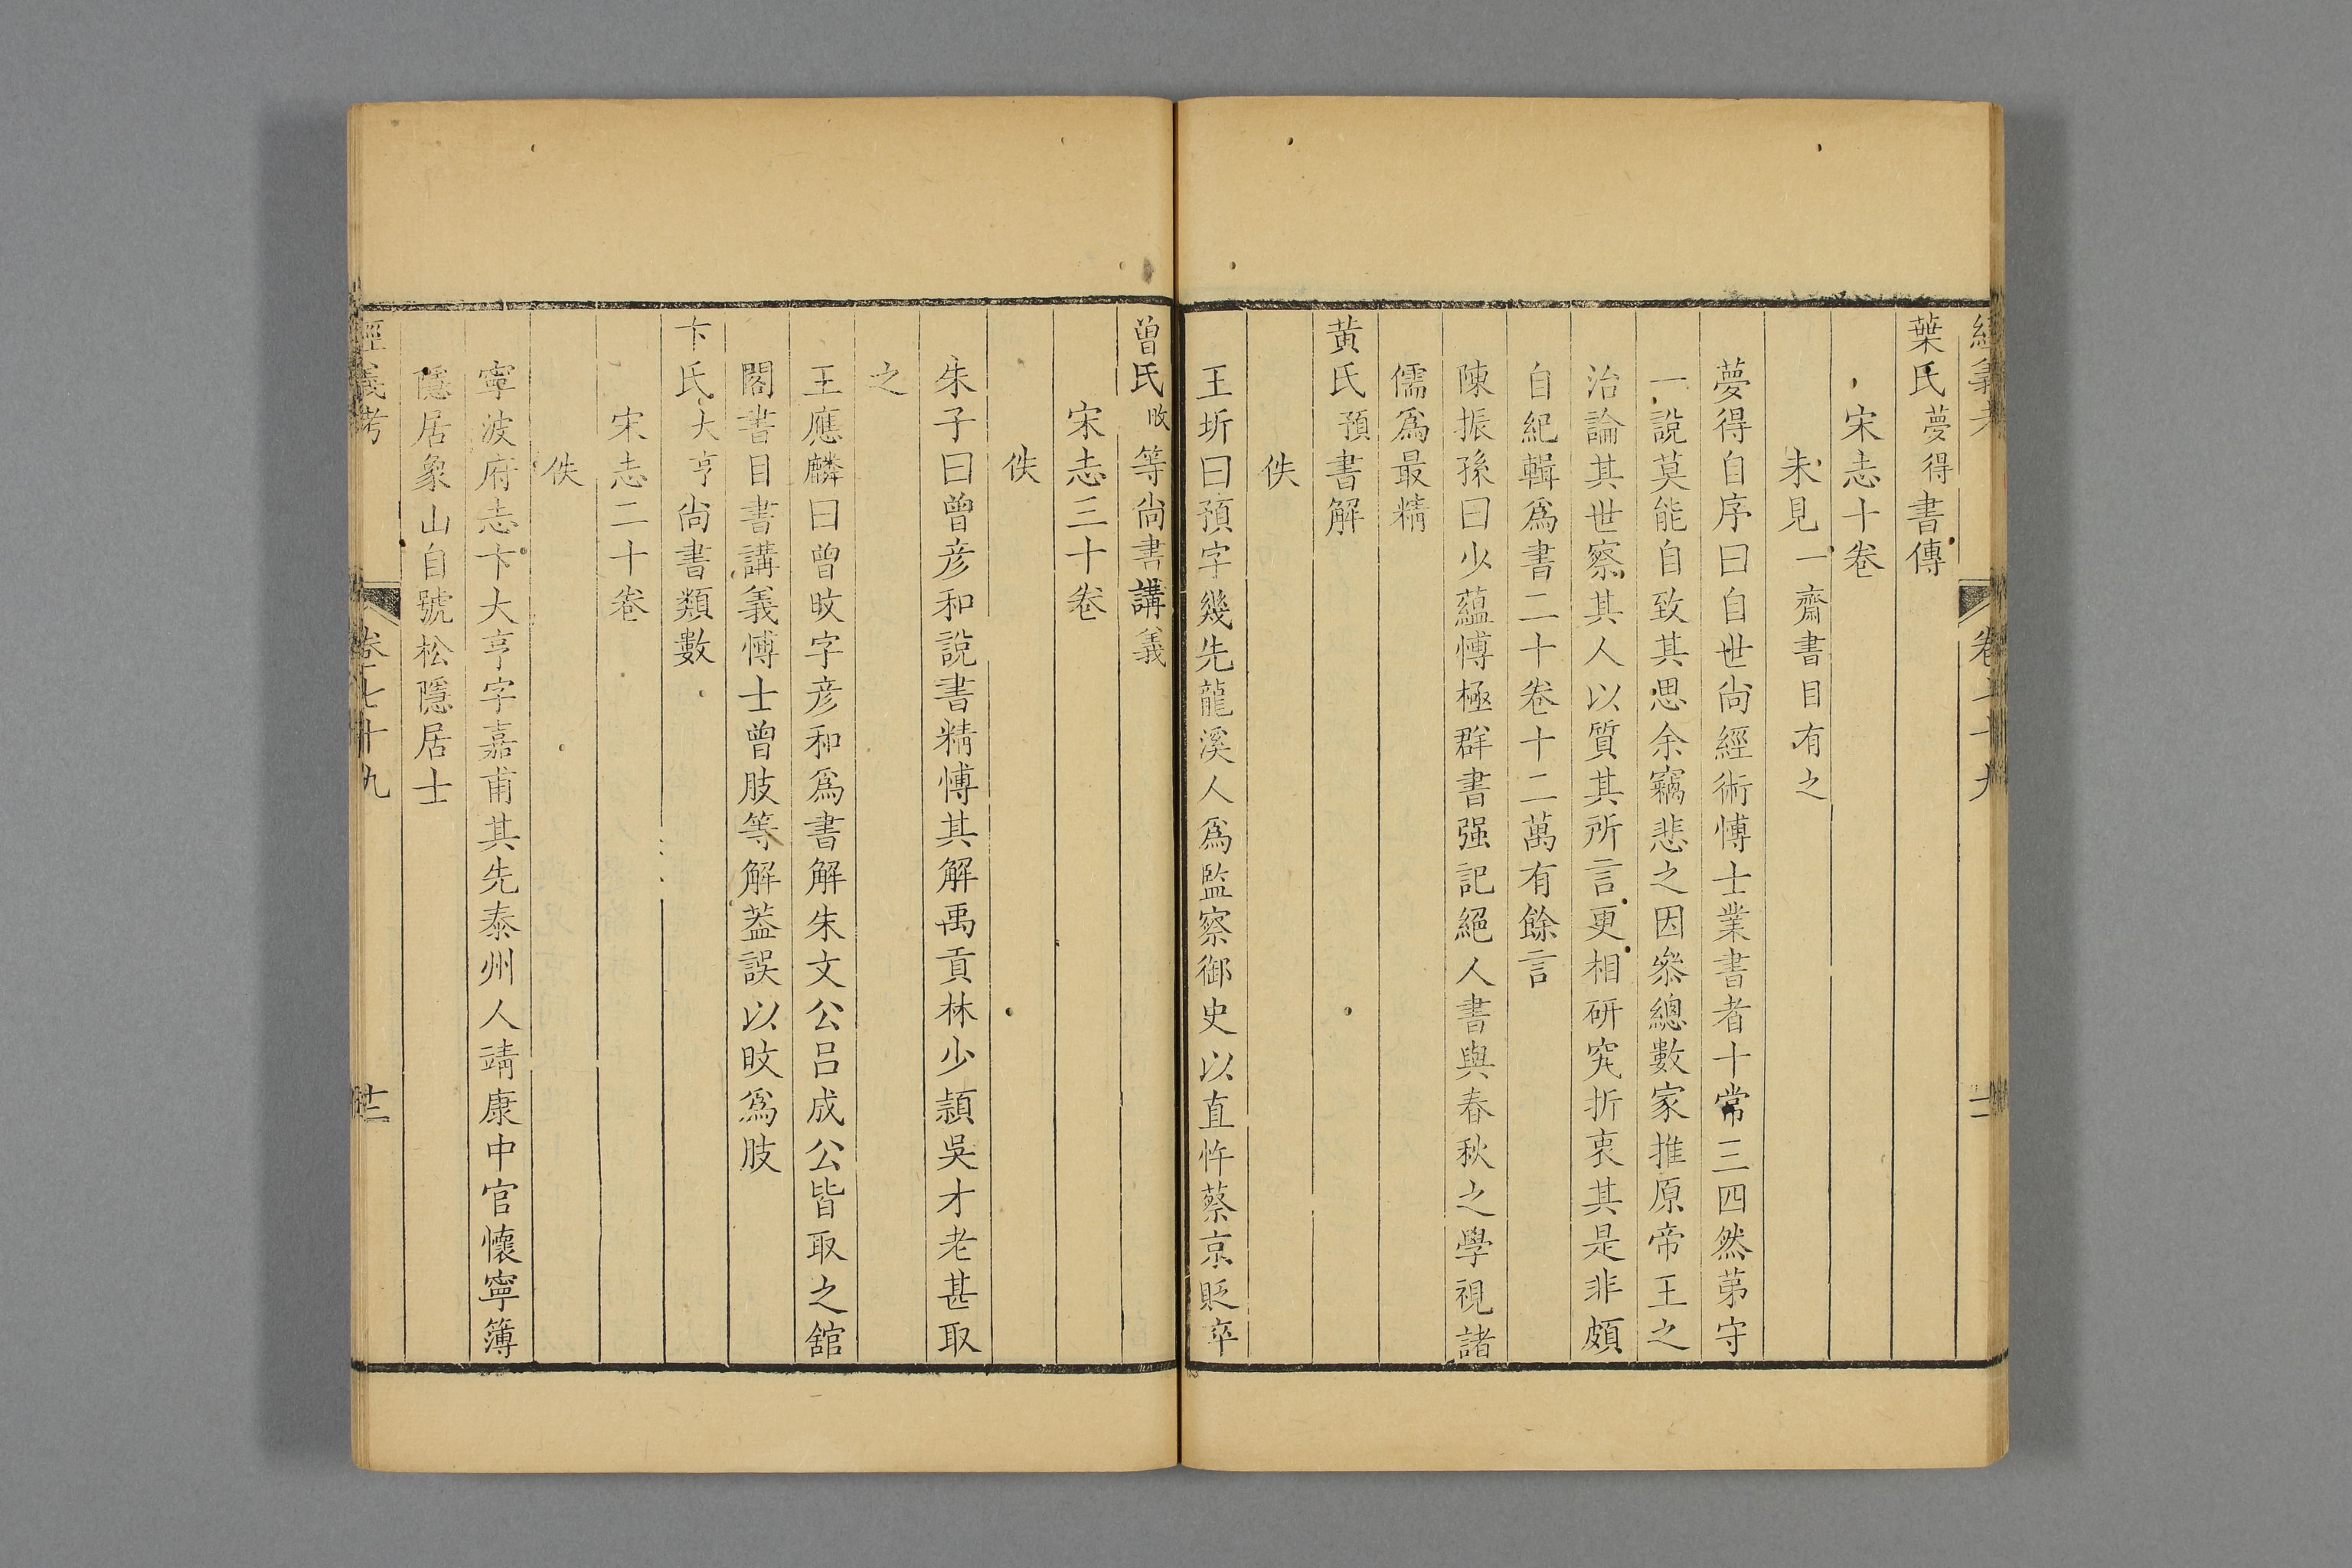 經義考 卷七十九 十一
葉氏夢得書傳
宋志十卷
未見一齋書目有之
夢得自序曰自世尚經術博士業書者十常三四然第守
一說莫能自致其思余竊悲之因叅總數家推原帝王之
治論其世察其人以質其所言更相研究折衷其是非頗
自紀輯爲書二十卷十二萬有餘言
陳振孫曰少蘊博極群書强記絕人書與春秋之學視諸
儒爲最精
黃氏預書解
佚
王圻曰預字幾先龍溪人爲監察御史以直忤蔡京貶卒
曾氏旼等尚書講義
宋志三十卷
佚
朱子曰曾彦和說書精博其解禹貢林少頴吳才老甚取
之
王應麟曰曾旼字彦和爲書解朱文公呂成公皆取之舘
閣書目書講義博士曾肢等解葢誤以旼爲肢
卞氏大亨尚書類數
宋志二十卷
佚
寧波府志卞大亨字嘉甫其先泰州人靖康中官懷寧簿
隱居象山自號松隱居士
經義考 卷七十九